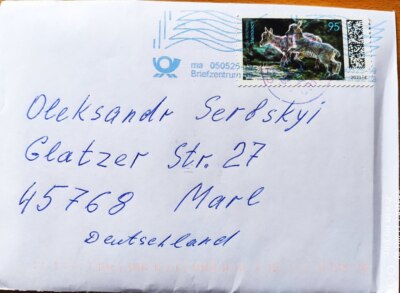 95
ma 050525
Briefzentrum
Oleksandr Ser8skyi
Glatzer Str. 27
45768 Marl
Deutschland